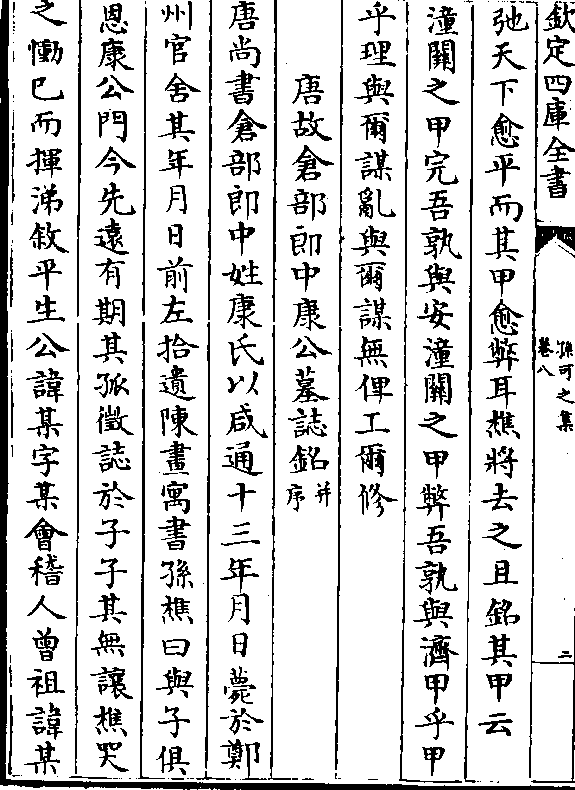 欽定四庫全書
孫可之集
卷八
二
弛天下愈平而其甲愈弊耳樵將去之且銘其甲云
潼關之甲完吾孰與安潼關之甲弊吾孰與濟甲乎甲
乎理與爾謀亂與爾謀無俾工爾修
唐故倉部郎中康公墓誌銘并序
唐尚書倉部郎中姓康氏以咸通十三年月日薨於鄭
州官舍其年月日前左拾遺陳晝寓書孫樵曰與子俱
恩康公門今先遠有期其孤徵誌於子子其無讓樵哭
之慟已而揮涕敘平生公諱某字某會稽人曾祖諱某